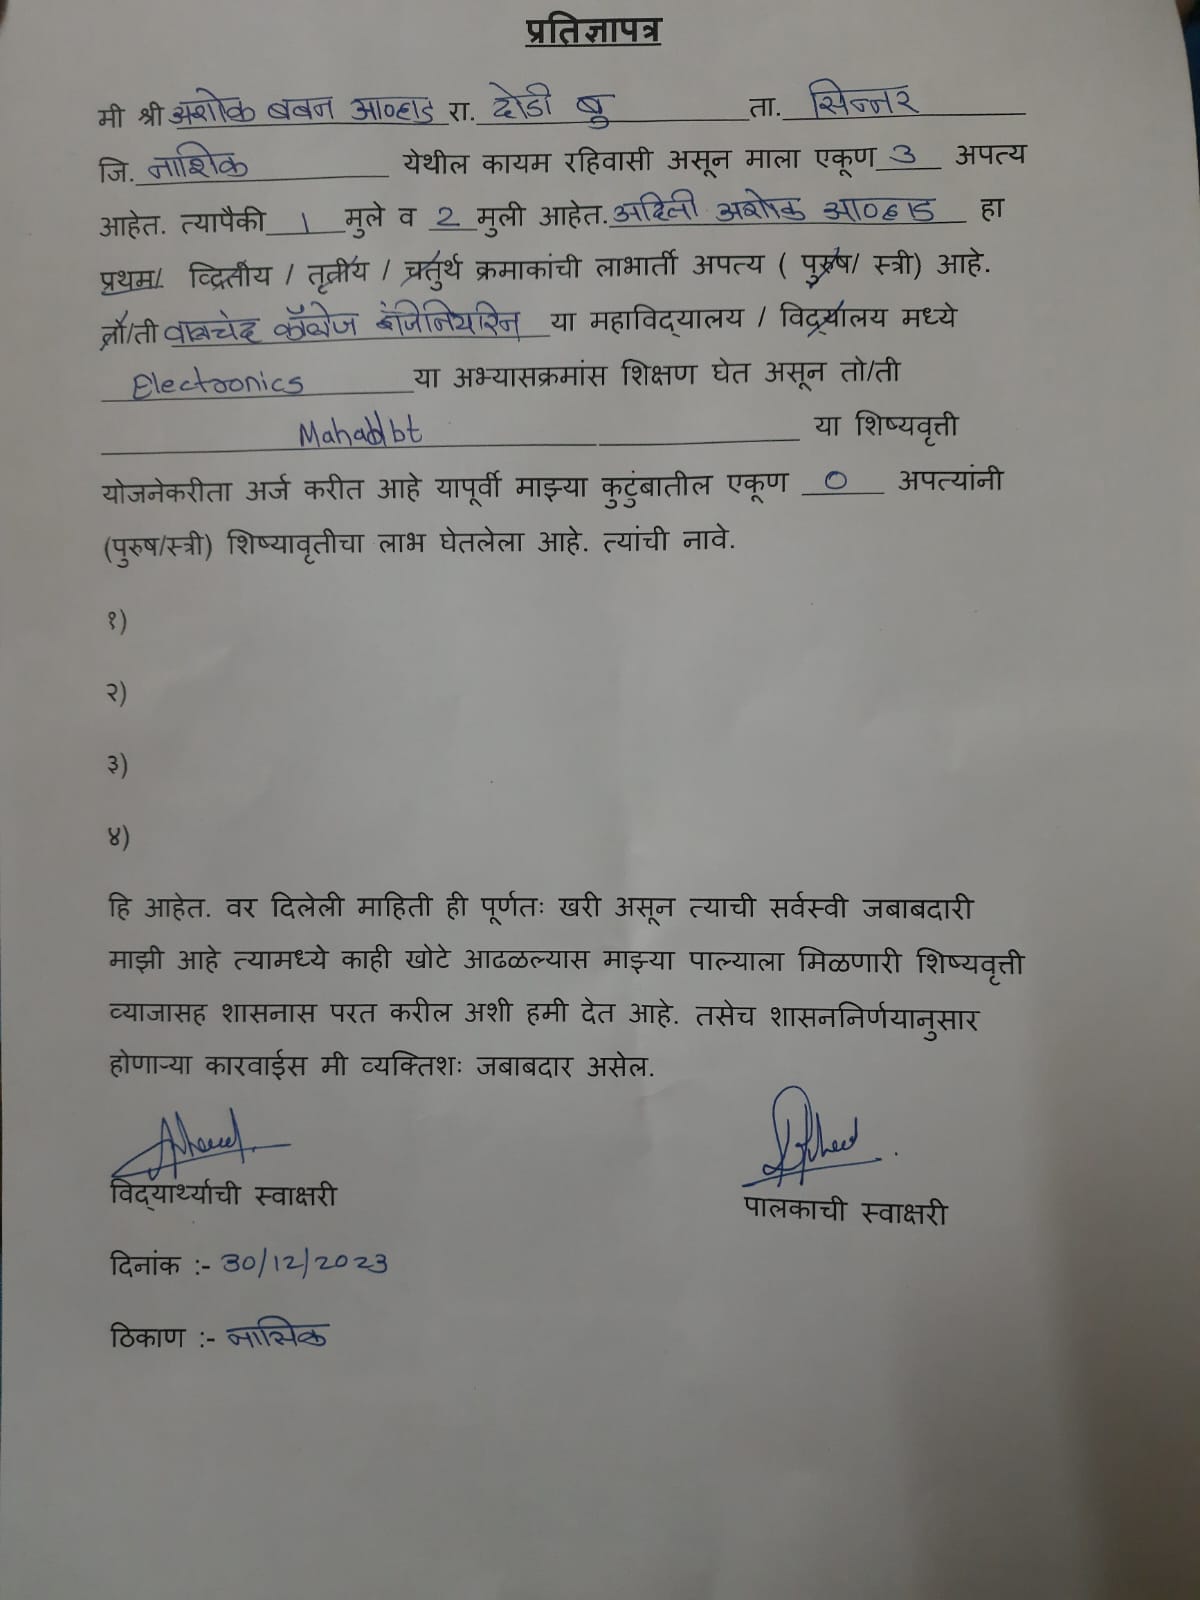 प्रतिज्ञापत्र
मी श्री अशोक बबन आव्हाड रा. दोडी बु ता. सिन्नर
जि. नाशिक येथील कायम रहिवासी असून माला एकूण 3 अपत्य
आहेत. त्यापैकी 1 मुले व 2 मुली आहेत. अदिती अशोक आव्हाड हा
प्रथम/ व्दितीय / तृतीय / चतुर्थ क्रमाकांची लाभार्ती अपत्य ( पुरुष/ स्त्री) आहे.
तो/ती वालचंद कॉलेज इंजिनियरिन या महाविद्यालय / विद्यालय मध्ये
Electronics या अभ्यासक्रमांस शिक्षण घेत असून तो/ती
Mahadbt या शिष्यवृत्ती
योजनेकरीता अर्ज करीत आहे यापूर्वी माझ्या कुटुंबातील एकूण 0 अपत्यांनी
(पुरुष/स्त्री) शिष्यावृतीचा लाभ घेतलेला आहे. त्यांची नावे.
१)
२)
३)
४)
हि आहेत. वर दिलेली माहिती ही पूर्णतः खरी असून त्याची सर्वस्वी जबाबदारी
माझी आहे त्यामध्ये काही खोटे आढळल्यास माझ्या पाल्याला मिळणारी शिष्यवृत्ती
व्याजासह शासनास परत करील अशी हमी देत आहे. तसेच शासननिर्णयानुसार
होणाऱ्या कारवाईस मी व्यक्तिशः जबाबदार असेल.
विद्यार्थ्याची स्वाक्षरी
पालकाची स्वाक्षरी
दिनांक :- 30/12/2023
ठिकाण :- नासिक